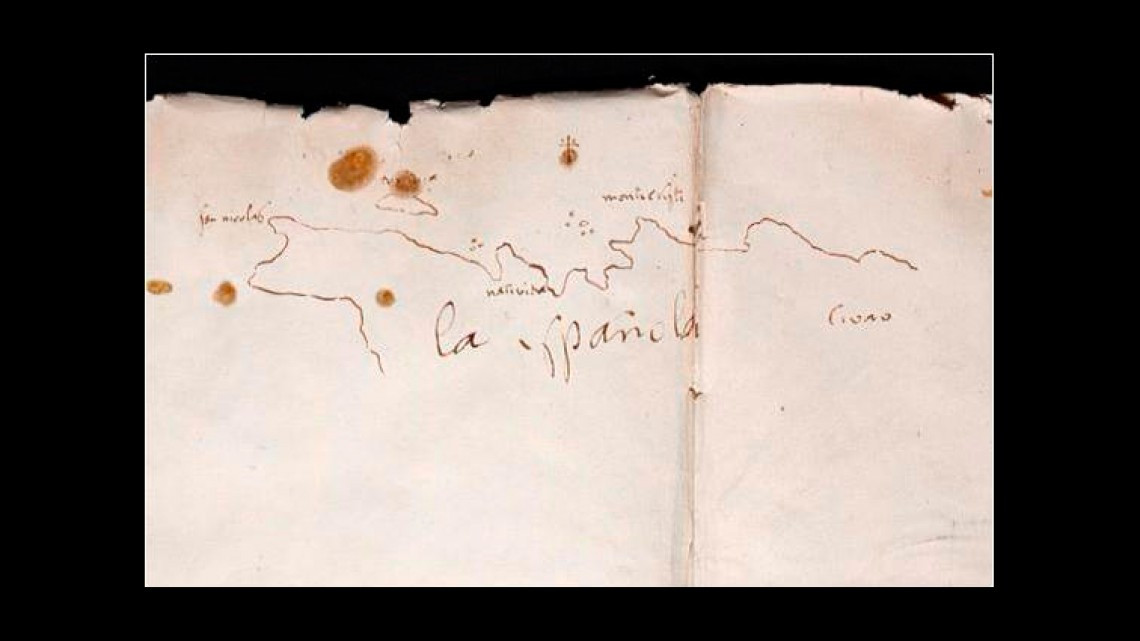 san nicolas
monte cristi
nativida
la española
civao